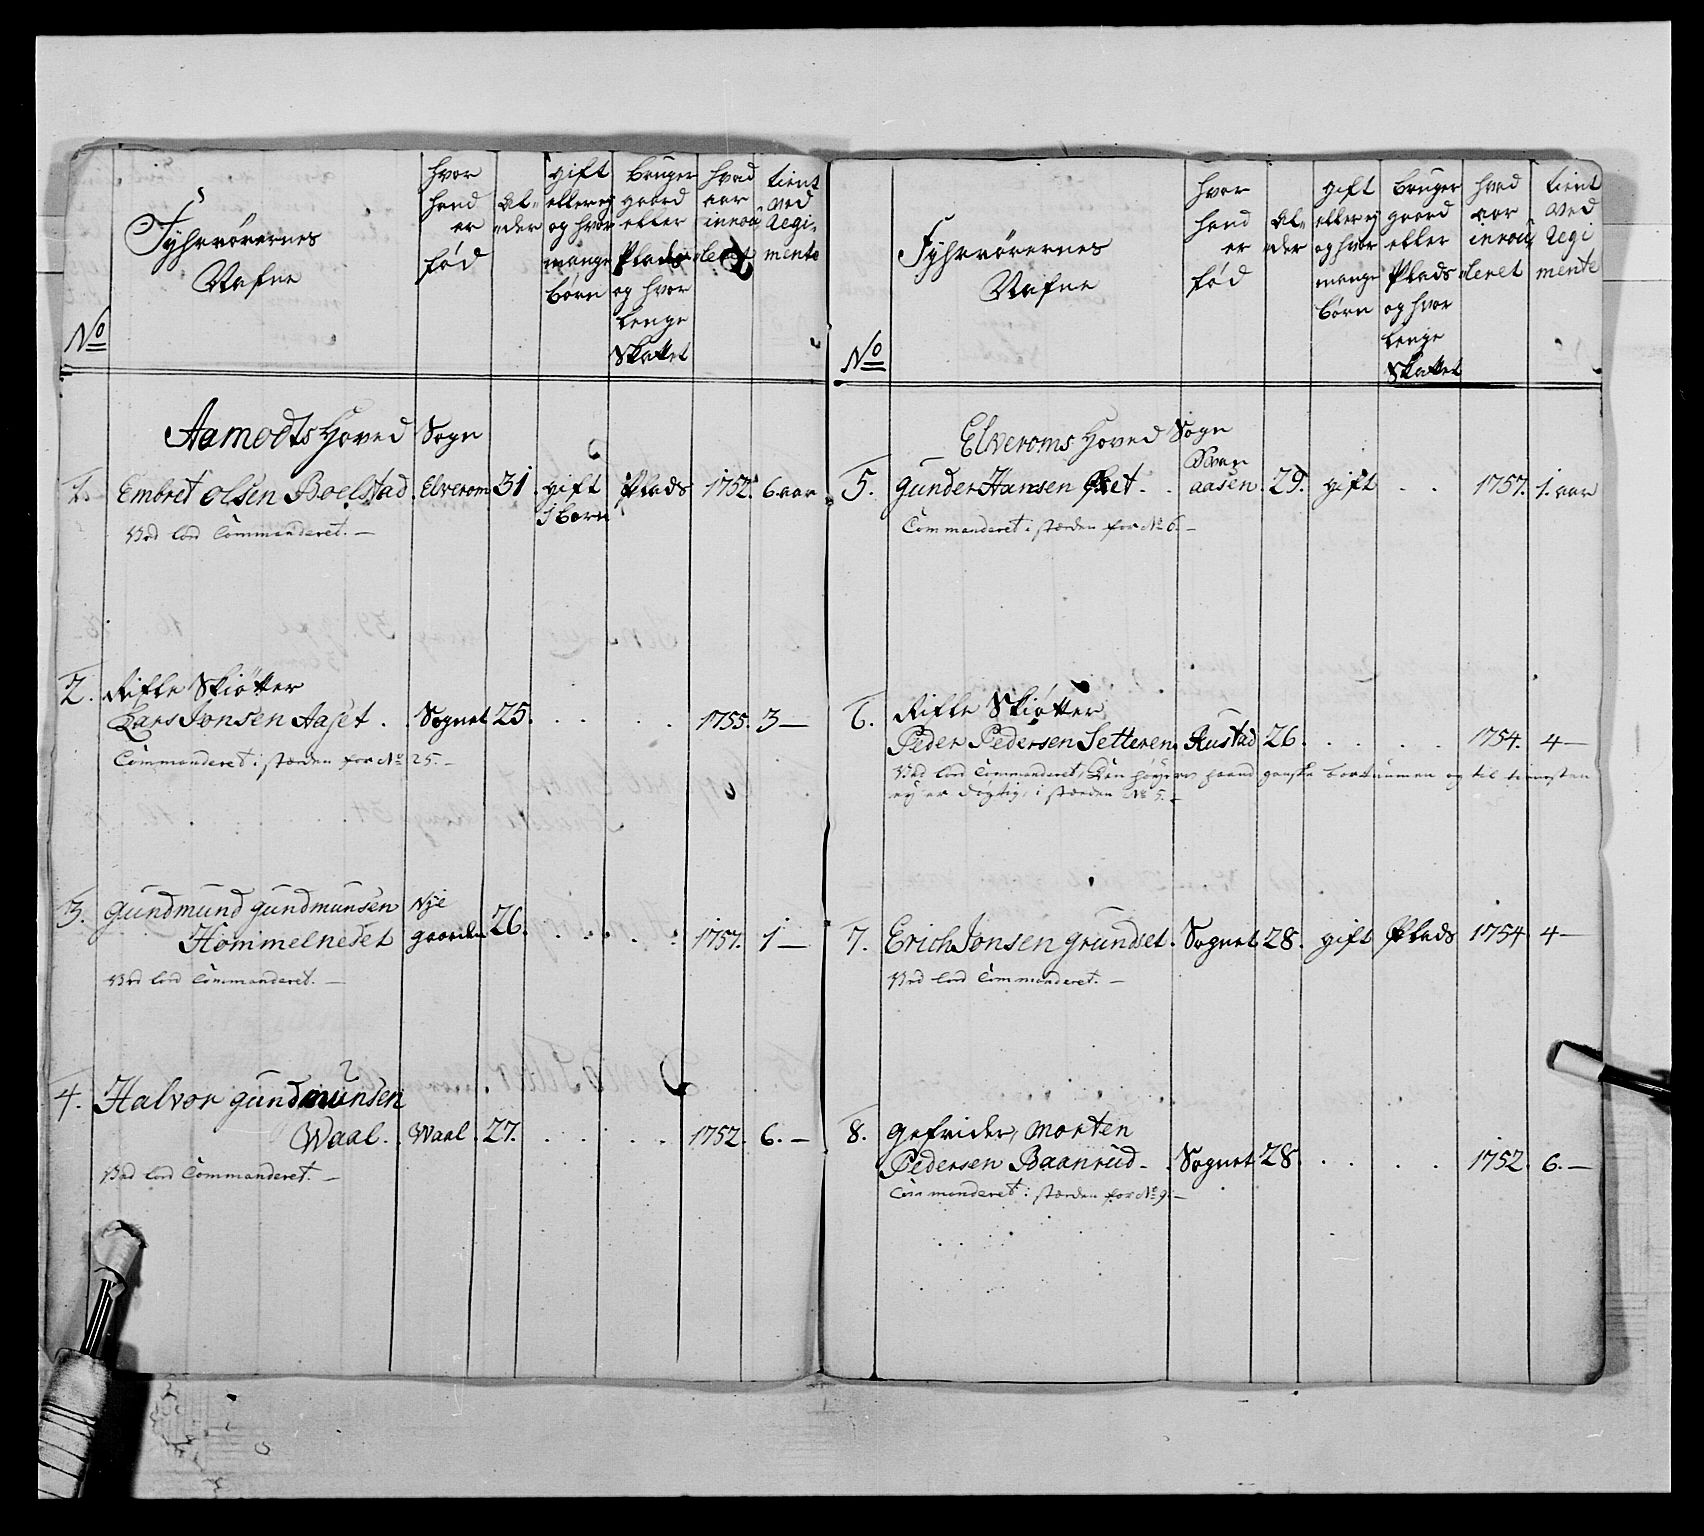 Fyhrrörernes
Nafne
No
hvor
hand
er
fød
al-
der
gift
eller ej
og hvor
mange
börn
bruger
gaard
eller
Plads
og hvor
lenge
Skattet
hvad
aar
inroul-
leret
tient
ved
Regi-
mente
Aamodts Hoved Sogn
1. Embret Olsen Boelstad. Elverom 31. gift Plads 1752. 6. aar
börn
Ved Cord Commanderet. —
2. Rifle Skiötter
Lars Jonsen Aaset. . Sognet 25. . . . . 1755. 3 —
Commanderet i stæden for No 25. —
3. Gundmund Gundmunsen Nye
Hommelneset gaarden 26. . . . . 1757. 1 —
Ved Cord Commanderet. —
4. Halvor Gundmunsen
Waal. . Waal. 27. . . . . 1752. 6. —
Ved Cord Commanderet. —
Fyhrrörernes
Nafne
No
hvor
hand
er
fød
al-
der
gift
eller ej
og hvor
mange
börn
bruger
gaard
eller
Plads
og hvor
lenge
Skattet
hvad
aar
inroul-
leret
tient
ved
Regi
mente
Elveroms Hoved Sogn
5. Gunder Hansen . . aasen. 29. gift . . 1757. 1. aar
Commanderet i stæden for No 6. —
6. Rifle Skiötter
Peder Pedersen Setteren. Rustad 26. . . . . 1754. 4 —
Ved Cord Commanderet, höyere haand ganske bortnumen og til tienesten
ey er dögtig, i stæden No 5. —
7. Erich Jonsen Grundset. Sognet 28. gift Plads 1754 4 —
Ved Cord Commanderet. —
8. Gefrider, Morten
Pedersen Baanrud. . Sognet 28. . . . . 1752. 6. —
Commanderet i stæden for No 9. —